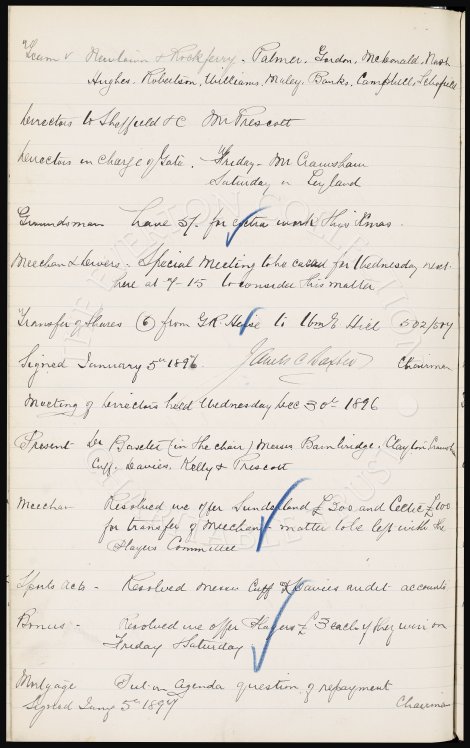 Team v Newtown & Rockferry - Palmer. Gordon. McDonald. Nash
Hughes. Robertson. Williams. Maley. Banks. Campbell. Schofield
Directors to Sheffield &C Mr Prescott
Directors in Charge of Gate. Friday - Mr Crawshaw
Saturday " Leyland
Groundsman have 5/- for extra work this Xmas.
Meechan & Divers - Special Meeting to be called for Wednesday next
here at 7-15 to consider this matter
Transfer of Shares (6) from G.R. to Wm E Hill 502/507
Signed January 5th 1897. James C Baxter Chairman
Meeting of Directors held Wednesday Dec 30th 1896
Present - Dr Baxter (in the chair) Messrs Bainbridge. Clayton. Crawshaw
Cuff. Davies. Kelly & Prescott
Meechan - Resolved we offer Sunderland £300 and Celtic £100
for transfer of Meechan - matter to be left with the
Players Committee
Sports acts - Resolved Messrs Cuff & Davies audit accounts
Bonus - Resolved we offer Players £3 each if they win on
Friday & Saturday
Mortgage Put on Agenda question of repayment
Signed Jany 5th 1897 Chairman
THE EVERTON COLLECTION
CHARITABLE TRUST